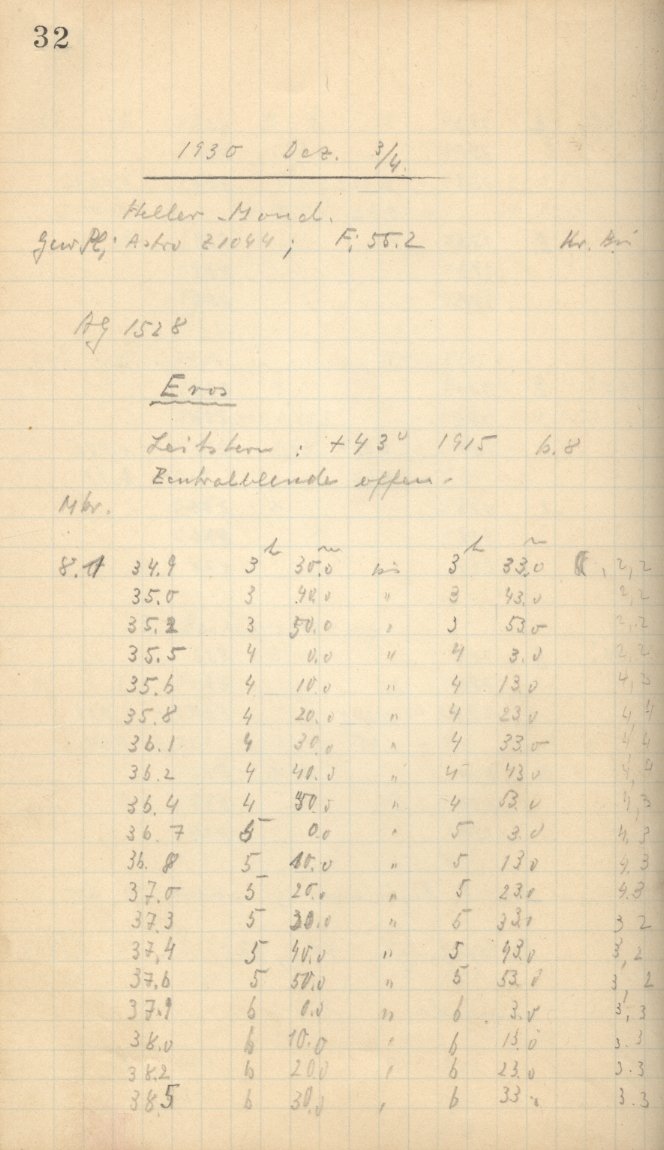 32
1930 Dez. 3/4.
Heller Mond.
Gew. Pl; Astro Z1044; F; 55.2 Kr. Bü
AG 1528
Eros
Leitstern: +43° 1915 h.8
Zentralblende offen.
Mbr.
8.1 34.9 3h 30.0m bis 3h 33.0m 2,2
35.0 3 40.0 " 3 43.0 2,2
35.2 3 50.0 " 3 53.0 2,2
35.5 4 0.0 " 4 3.0 2 2
35.6 4 10.0 " 4 13.0 4,3
35.8 4 20.0 " 4 23.0 4,4
36.1 4 30.0 " 4 33.0 4 4
36.2 4 40.0 " 4 43.0 4,4
36.4 4 50.0 " 4 53.0 4,3
36.7 5 0.0 " 5 3.0 4,3
36.8 5 10.0 " 5 13.0 4.3
37.0 5 20.0 " 5 23.0 4.3
37.3 5 30.0 " 5 33.0 3 2
37.4 5 40.0 " 5 43.0 3,2
37.6 5 50.0 " 5 53.0 3, 2
37.9 6 0.0 " 6 3.0 3,3
38.0 6 10.0 " 6 13.0 3.3
38.2 6 20.0 " 6 23.0 3.3
38.5 6 30.0 " 6 33.0 3.3